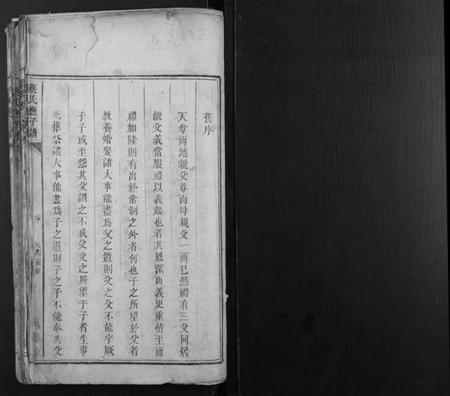 舊序
天尊而地親父尊而母親父一而已然禮有三父同居
繼父義當服禮以義起也若其恩深而義更重情至而
禮加隆則有出於常制之外者何也子之所望於父者
教養婚娶諸大事能盡爲父之道則父之父不能字厥
子子或至怨其父謂之不成父父之所望于子者生事
葬祭諸大事能盡爲子之道則子之子不能奉其父
氏應子譜
序